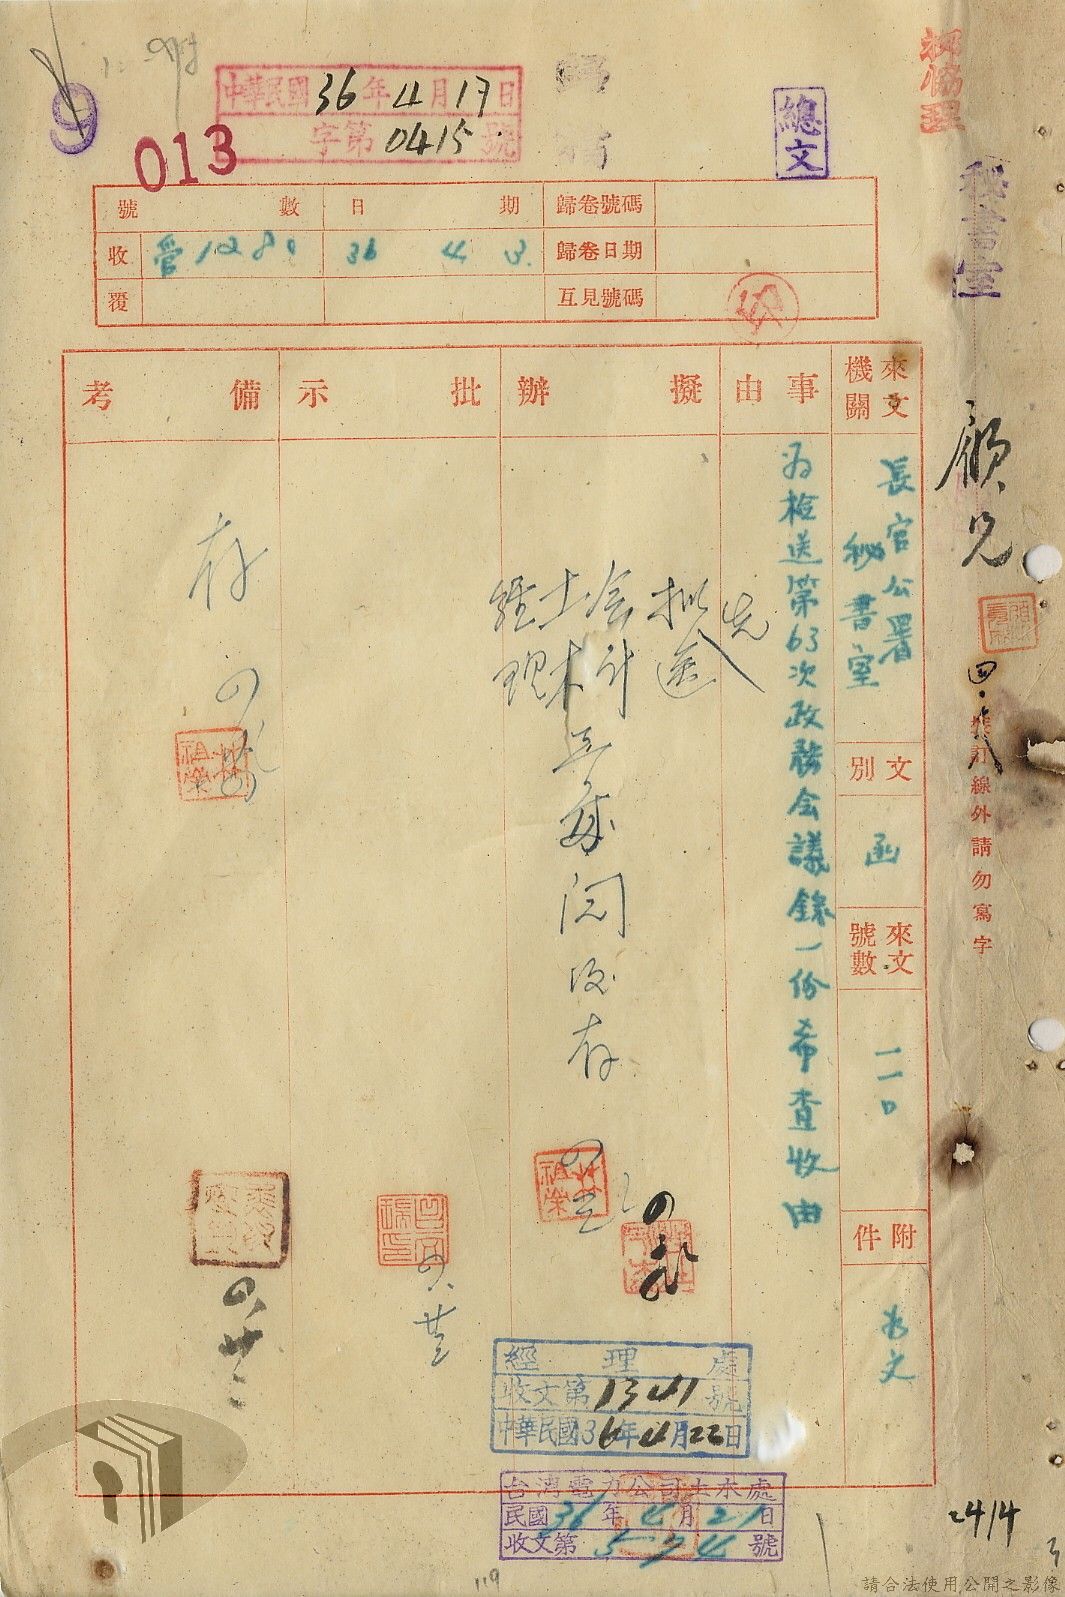 中華民國36年4月17日
字第0415號
013
總文
秘書室
號數
日期
歸卷號碼
收
管128
36 4 3.
歸卷日期
覆
互見號碼
來文機關
事由
擬辦
批示
備考
長官公署
秘書室
文別
函
來文號數
一一〇
附件
為檢送第63次政務会議錄一份希查收由
先
拟送
会计
土木
經理
閱後存
存
裝訂線外請勿寫字
經理處
收文第1341號
中華民國36年4月22日
台灣電力公司土木處
民國36年4月21日
收文第574號
2414
119
請合法使用公開之影像